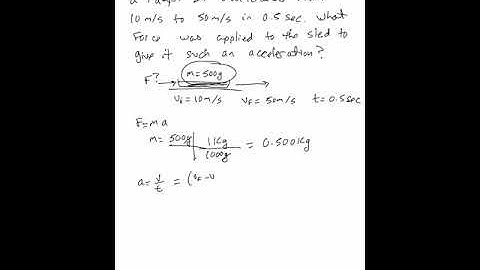 10 m/s to 50 m/s in 0.5 sec. What
Force was applied to the sled to
give it such an aceleration?
F? m=500g
Vi=10m/s VF=50m/s t=0.5sec
F=ma
m= 500g 1Kg = 0.500Kg
1000g
a= v/t = (VF-V